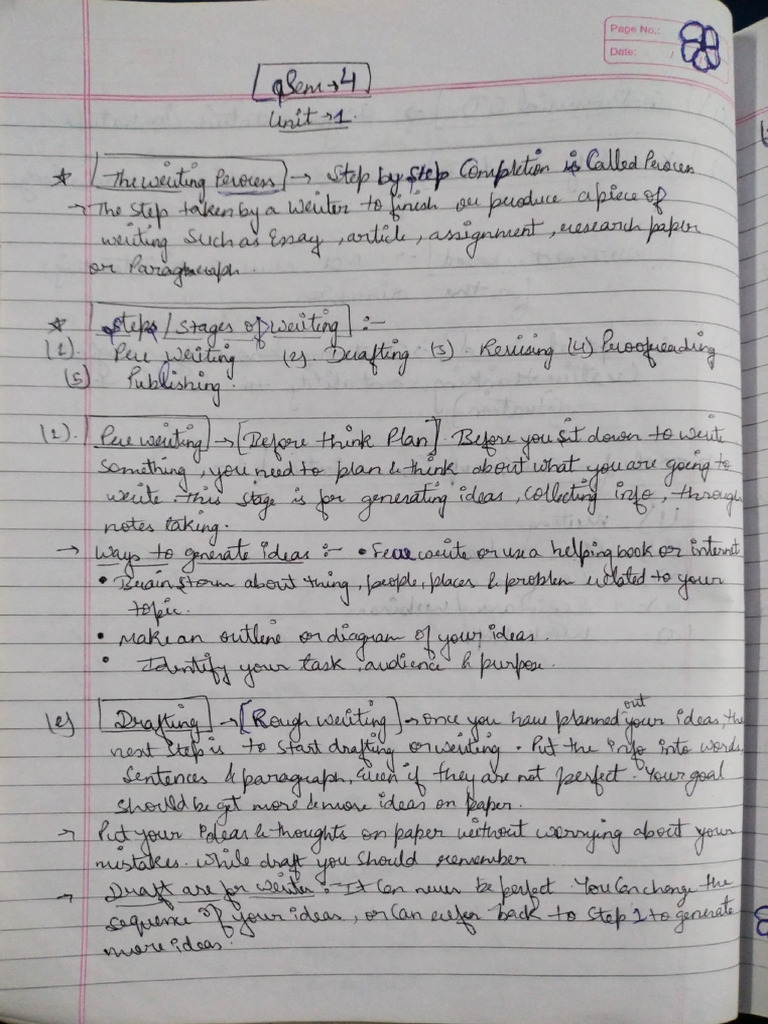 Page No.:
Date:
Sem → 4
Unit → 1.
* The Writing Process → Step by Step Completion is Called Process
→ The Step taken by a writer to finish or produce a piece of
writing Such as Essay, article, assignment, research paper
or Paragraph.
* Steps / Stages of Writing :-
(1). Pre Writing (2). Drafting (3). Revising (4) Proofreading
(5) Publishing.
(1). Pre writing → [Before think Plan]. Before you sit down to write
something, you need to plan & think about what you are going to
write. this stage is for generating ideas, collecting info, through
notes taking.
→ Ways to generate ideas :- • Free write or use a helping book or internet
• Brain storm about thing, people, places & problem related to your
topic.
• Make an outline or diagram of your ideas.
• Identify your task, audience & purpose.
(2) Drafting → [Rough writing] → once you have planned out your ideas, the
next step is to start drafting or writing. Put the info into words,
Sentences & paragraph, Even if they are not perfect. Your goal
should be get more & more ideas on paper.
→ Put your Ideas & thoughts on paper without worrying about your
mistakes. while draft you should remember
→ Draft are for writer :- It Can never be perfect. You Can change the
sequence of your ideas, or Can refer back to Step 1 to generate
more ideas.